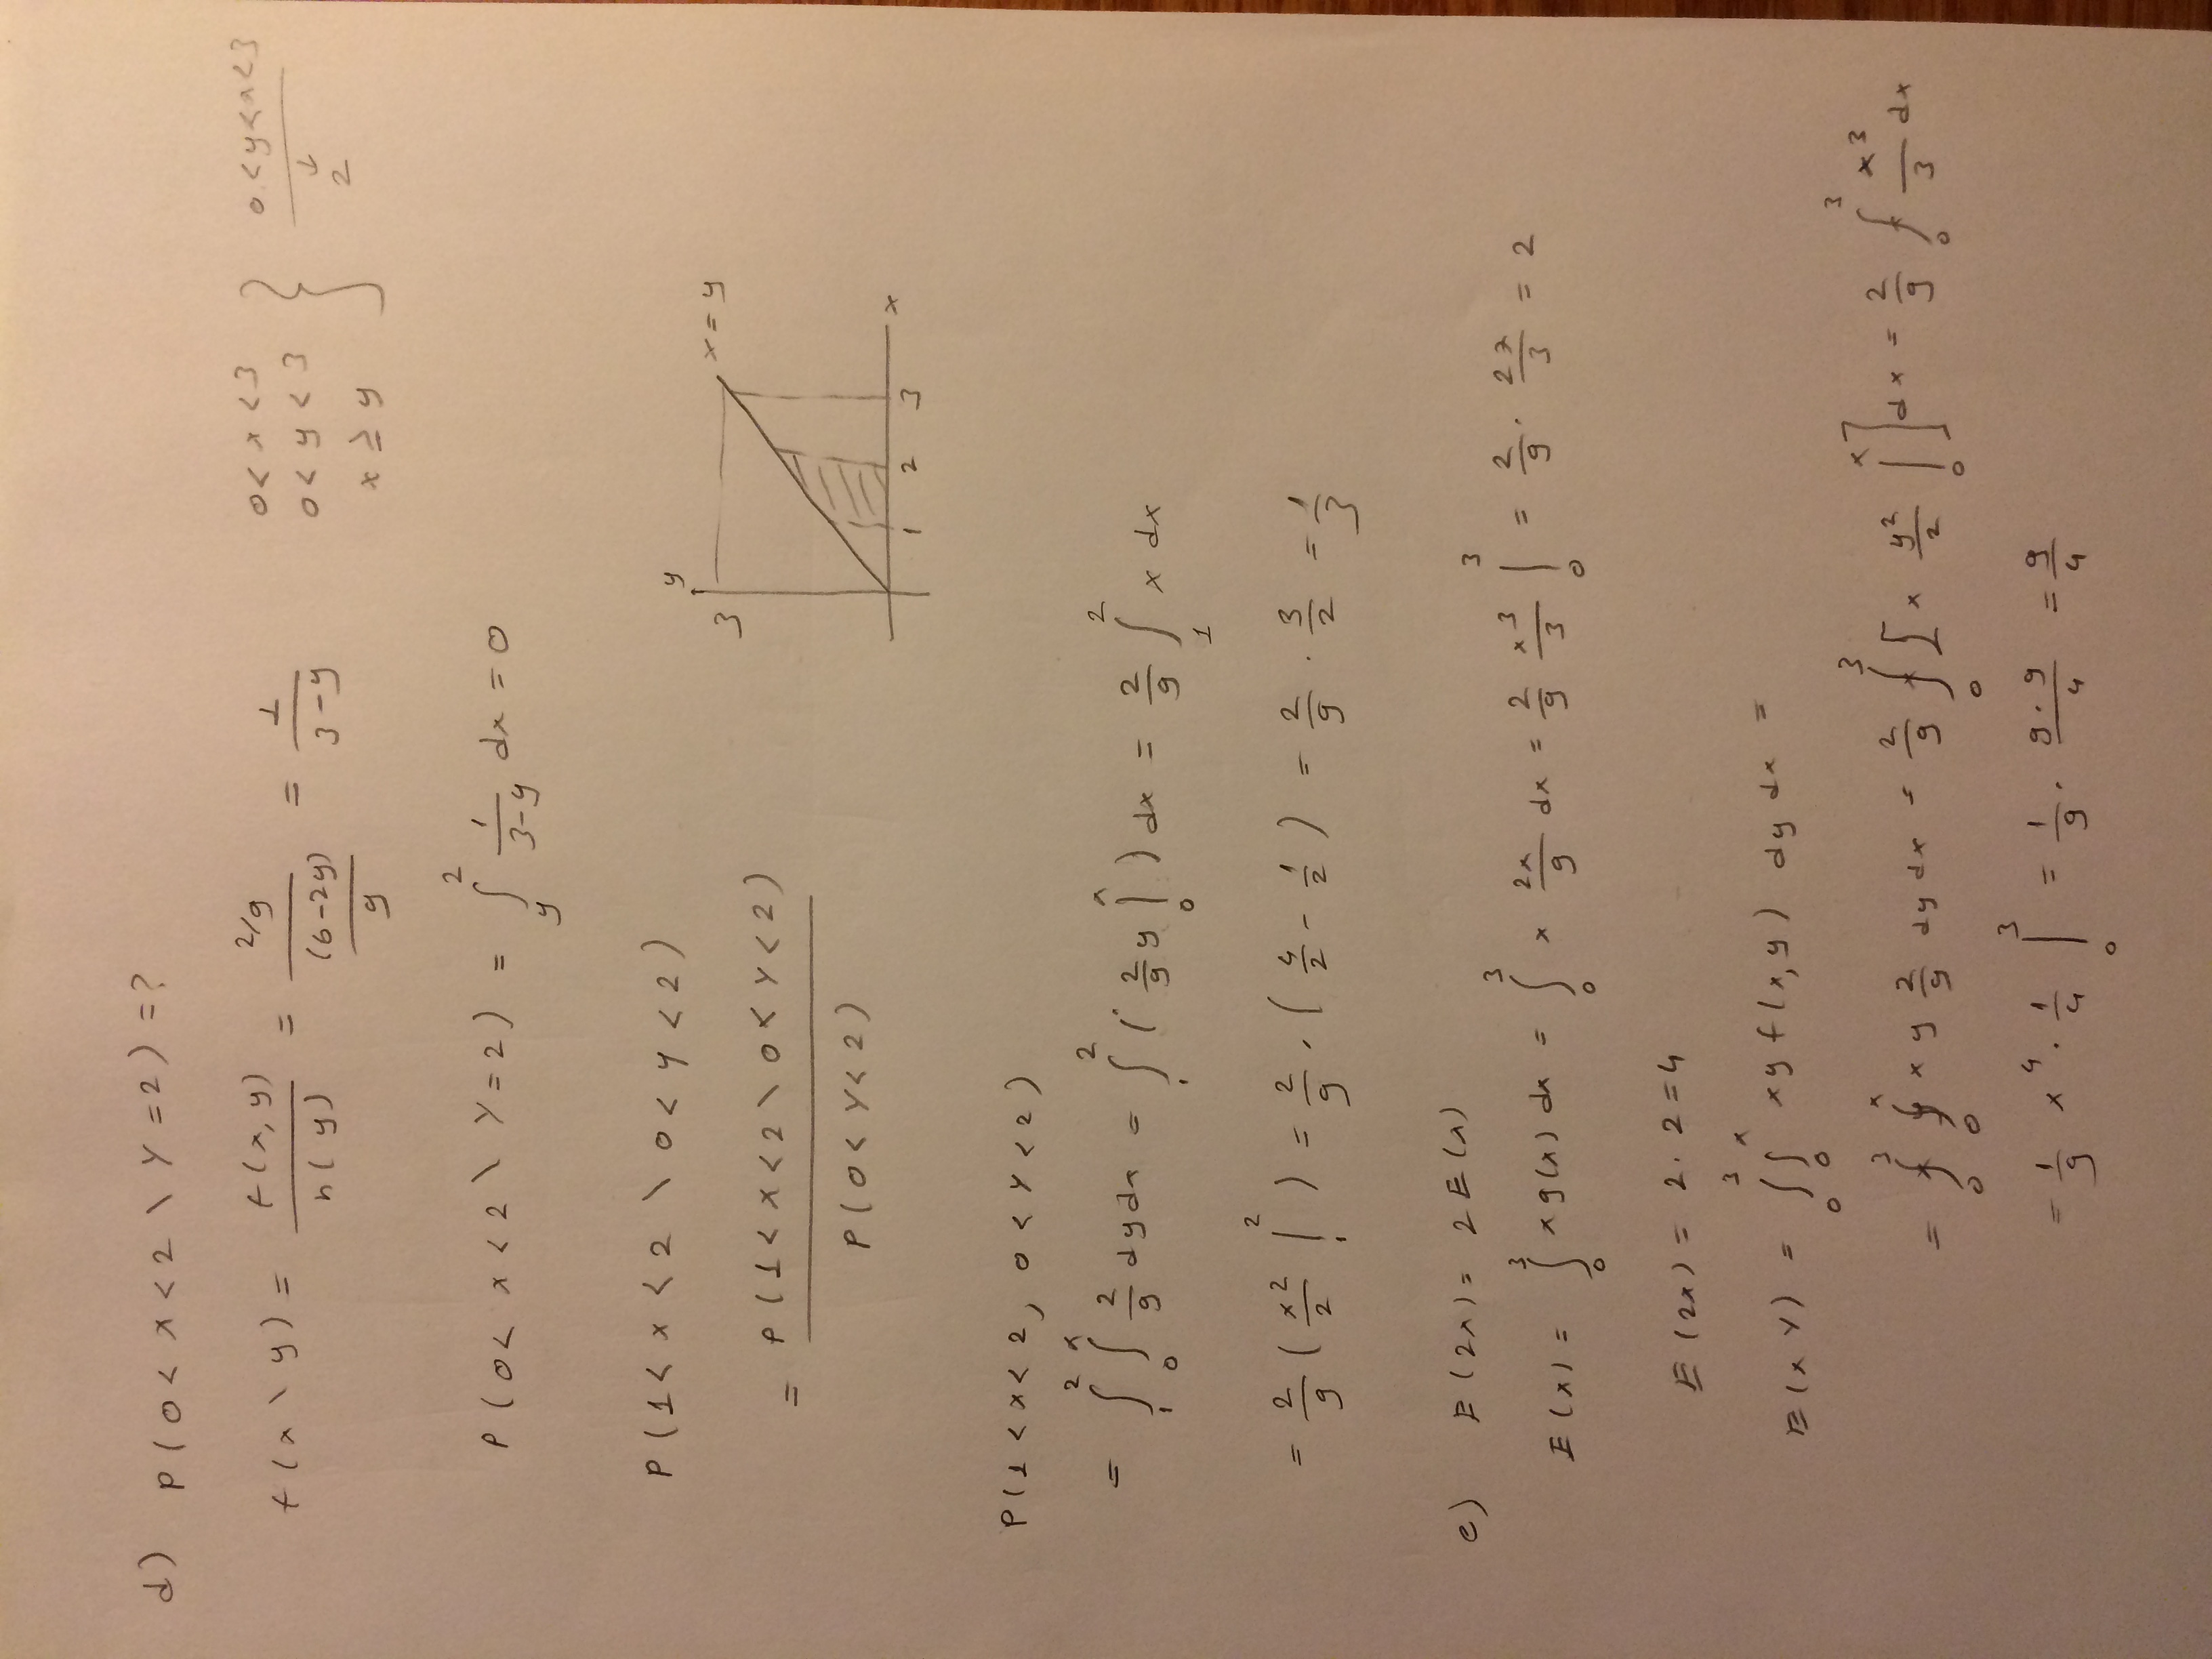 d) P(0 < x < 2 \ Y = 2) = ?
f(x \ y) = f(x, y) / h(y) = 2/9 / (6-2y)/9 = 1 / 3-y
0 < x < 3
0 < y < 3
x ≥ y
} 0 < y < x < 3
↓
2
P(0 < x < 2 \ Y = 2) = ∫_y^2 1/3-y dx = 0
P(1 < x < 2 \ 0 < y < 2)
= P(1 < x < 2 \ 0 < Y < 2) / P(0 < Y < 2)
y
3
x = y
1 2 3
x
P(1 < x < 2, 0 < Y < 2)
= ∫_1^2 ∫_0^x 2/9 dy dx = ∫_1^2 ( 2/9 y |_0^x ) dx = 2/9 ∫_1^2 x dx
= 2/9 ( x^2/2 |_1^2 ) = 2/9 . ( 4/2 - 1/2 ) = 2/9 . 3/2 = 1/3
e) E(2x) = 2 E(x)
E(x) = ∫_0^3 x g(x) dx = ∫_0^3 x 2x/9 dx = 2/9 x^3/3 |_0^3 = 2/9 . 27/3 = 2
E(2x) = 2 . 2 = 4
E(x Y) = ∫_0^3 ∫_0^x x y f(x, y) dy dx =
= ∫_0^3 ∫_0^x x y 2/9 dy dx = 2/9 ∫_0^3 [ x y^2/2 |_0^x ] dx = 2/9 ∫_0^3 x^3/3 dx
= 1/9 x^4 . 1/4 |_0^3 = 1/9 . 9.9/4 = 9/4